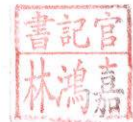 書記官
林鴻嘉